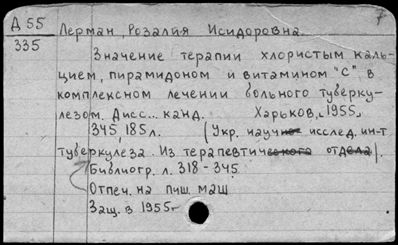 7
Д 55
335
Лерман, Розалия Исидоровна.
Значение терапии хлористым каль-
цием, пирамидоном и витамином "С" в
комплексном лечении больного туберку-
лезом. Дисс... канд. Харьков, 1955,
345, 185 л. (Укр. научно исслед. ин-т
туберкулеза. Из терапевтического отдела).
Библиогр. л. 318-345
Отпеч. на пиш. маш
Защ. в 1955г